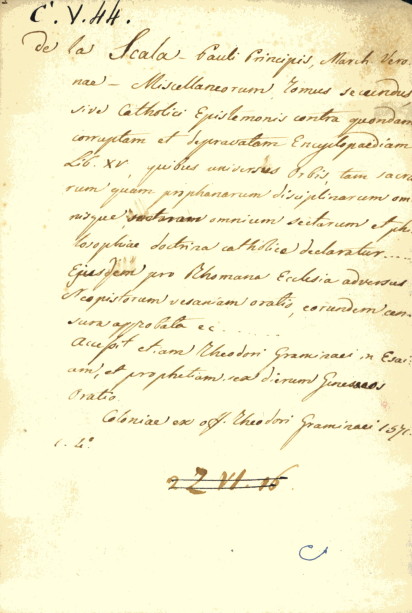 C. V. 44.
de la Scala - Pauli Principis, March. Vero
nae - Miscellaneorum Tomus secundus
sive Catholici Epistemonis contra quondam
corruptam et depravatam Encyclopaediam
Lib. XV, quibus universus Orbis, tam sacra
rum quam prophanarum disciplinarum om
nisque, omnium sectarum et phi
losophiae doctrina catholice declaratur.....
Ejusdem pro Rhomana Ecclesia adversus
Neopistorum vesaniam oratio, eorundem cen
sura approbata ec.......
Accessit etiam Theodori Graminaei in Esai
am, et prophetiam sex dierum Geneseos
Oratio.
Coloniae ex off. Theodori Graminaei 1571.
4º.
2 Z VI. 16